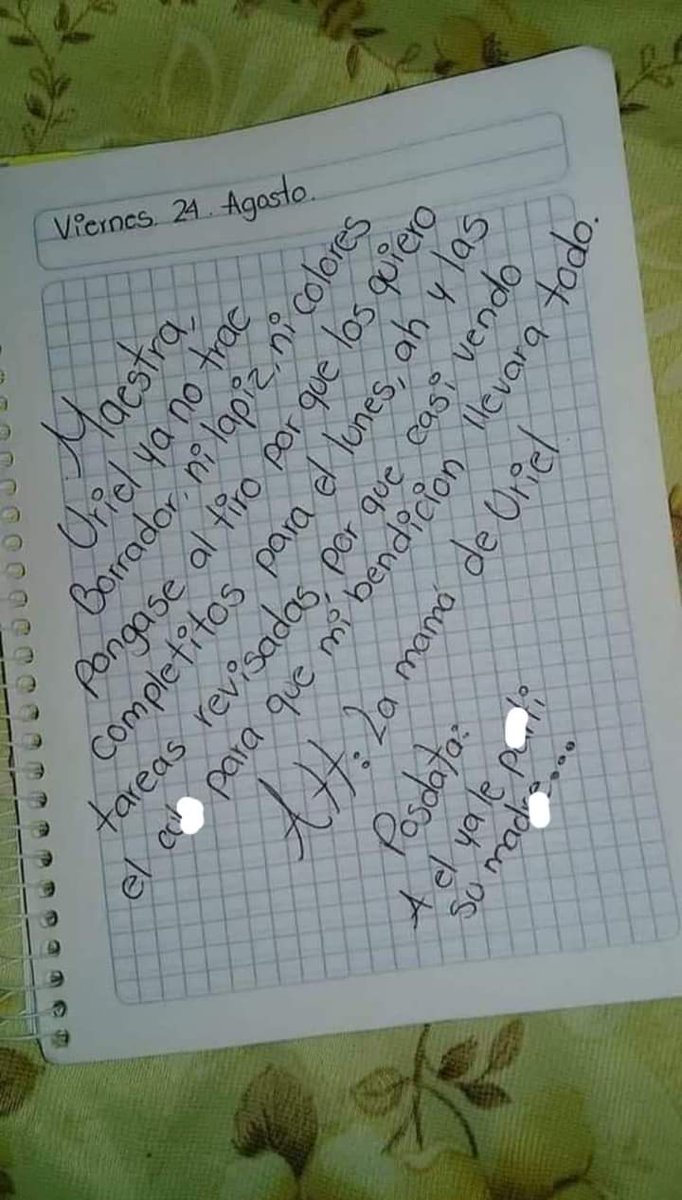 Viernes. 24. Agosto.
Maestra,
Uriel ya no trac
Borrador, ni lapiz, ni colores
Pongase al tiro por que los quiero
completitos para el lunes, ah y las
tareas revisadas, por que casi vendo
el para que mi bendicion llevara todo.
Att: La mamá de Uriel
Posdata:
A el ya le
su